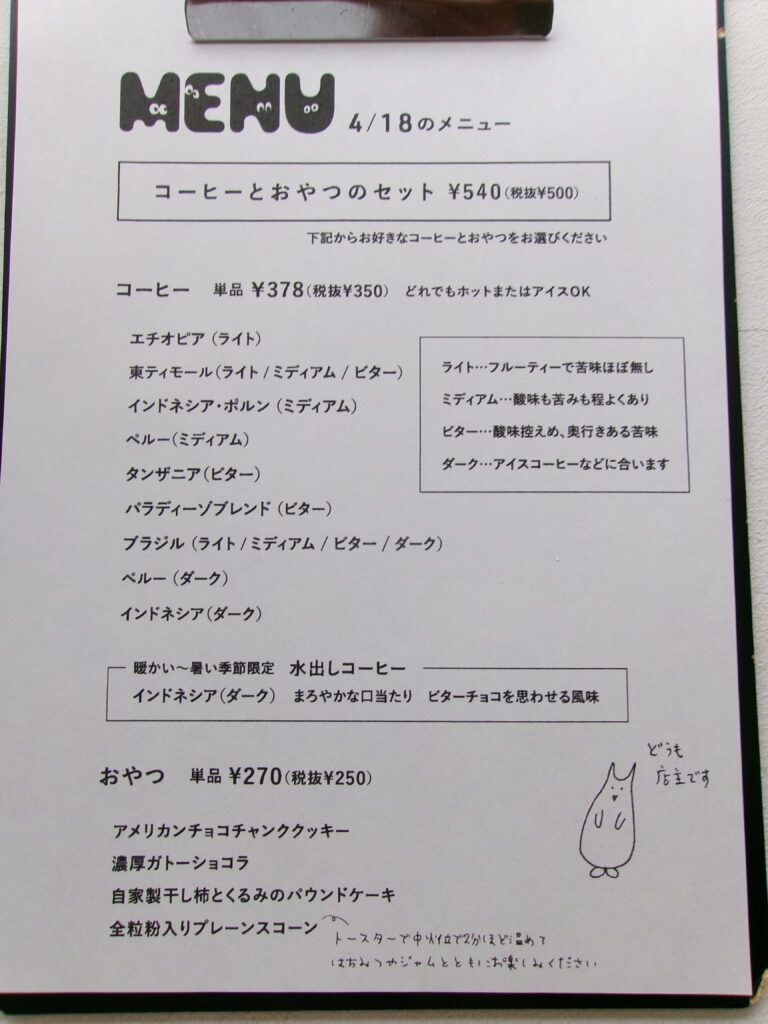 MENU 4/18のメニュー
コーヒーとおやつのセット ¥540(税抜¥500)
下記からお好きなコーヒーとおやつをお選びください
コーヒー 単品 ¥378(税抜¥350) どれでもホットまたはアイスOK
エチオピア (ライト)
東ティモール(ライト / ミディアム / ビター)
インドネシア・ポルン (ミディアム)
ペルー(ミディアム)
タンザニア(ビター)
パラディーゾブレンド (ビター)
ブラジル (ライト / ミディアム / ビター / ダーク)
ペルー (ダーク)
インドネシア(ダーク)
ライト…フルーティーで苦味ほぼ無し
ミディアム…酸味も苦みも程よくあり
ビター…酸味控えめ、奥行きある苦味
ダーク…アイスコーヒーなどに合います
暖かい〜暑い季節限定 水出しコーヒー
インドネシア(ダーク) まろやかな口当たり ビターチョコを思わせる風味
おやつ 単品 ¥270(税抜¥250)
アメリカンチョコチャンククッキー
濃厚ガトーショコラ
自家製干し柿とくるみのパウンドケーキ
全粒粉入りプレーンスコーン
トースターで中火位で2分ほど温めて
はちみつやジャムとともにお楽しみください
どうも
店主です